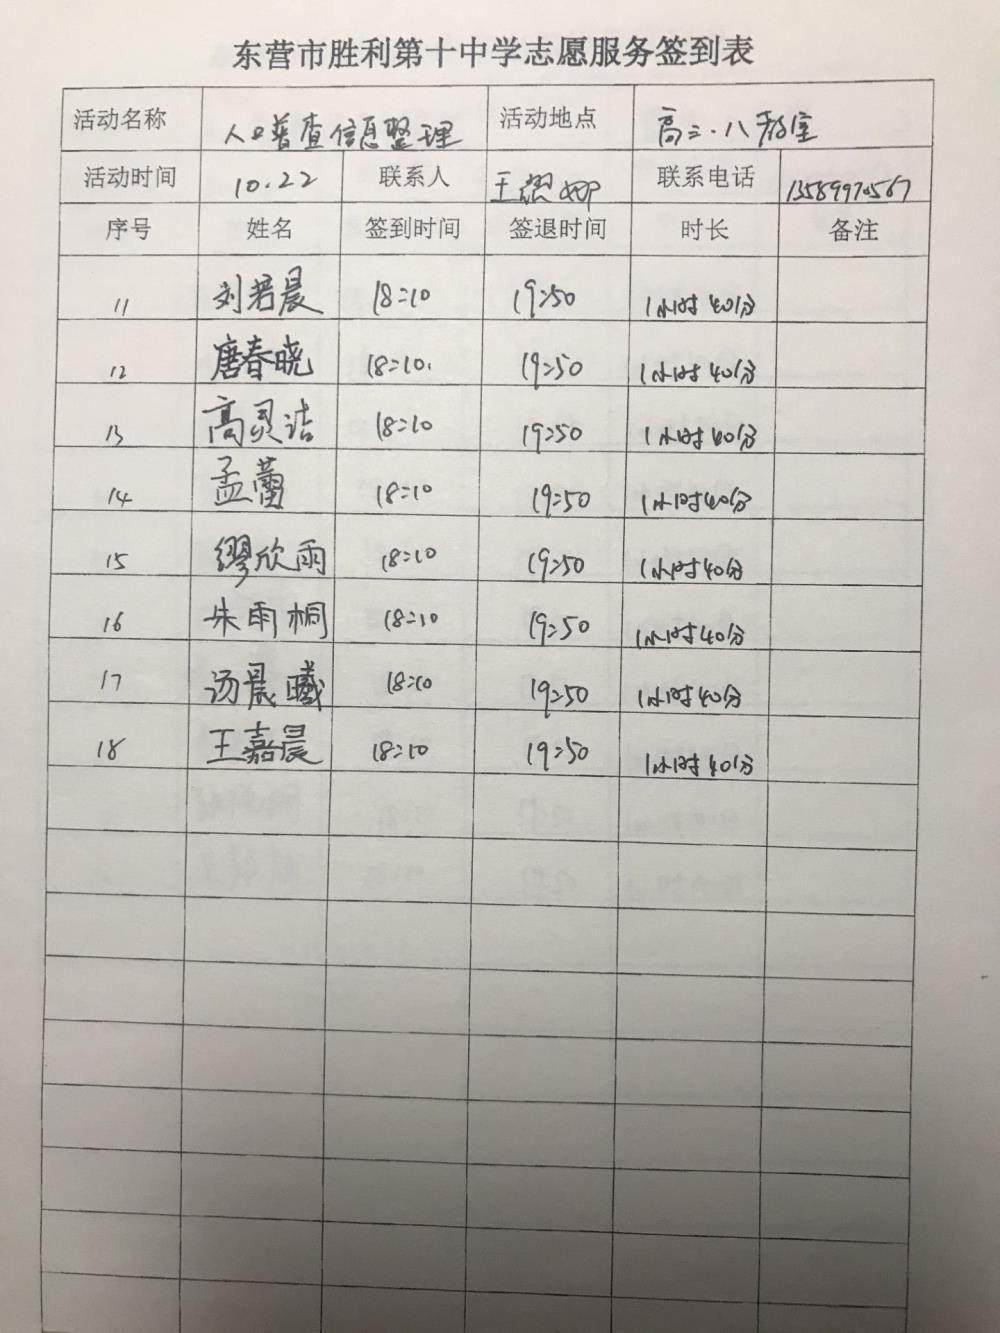 东营市胜利第十中学志愿服务签到表
活动名称 人口普查信息整理 活动地点 高三.八教室
活动时间 10.22 联系人 王 联系电话 13589970567
序号 姓名 签到时间 签退时间 时长 备注
11 刘若晨 18:10 19:50 1小时40分
12 唐春晓 18:10. 19:50 1小时40分
13 高灵洁 18:10 19:50 1小时40分
14 孟蕾 18:10 19:50 1小时40分
15 缪欣雨 18:10 19:50 1小时40分
16 朱雨桐 18:10 19:50 1小时40分
17 汤晨曦 18:10 19:50 1小时40分
18 王嘉晨 18:10 19:50 1小时40分